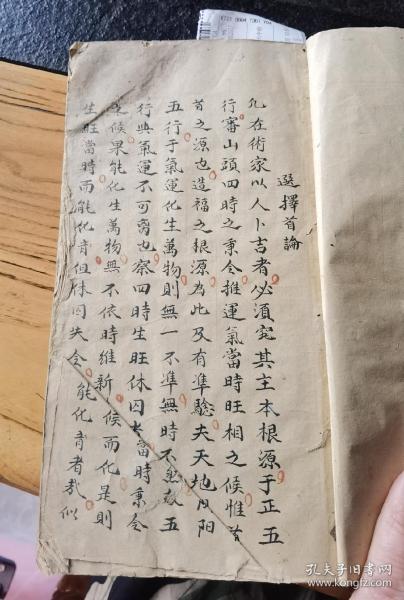 選擇首論
凢在術家以人卜吉者必須究其主本根源于正五
行審山頭四時之秉令推運氣當時旺相之候惟首
首之源也造福之根源為此及有準騐夫天地阴阳
五行于氣運化生萬物則無一不準無時不然故五
行與氣運不可离也察四時生旺休囚如當時秉令
之候果能化生萬物無不依時維新候而化是則
生旺當時而能化育但休囚失令能化育者哉似
孔夫子旧书网
www.kongfz.com